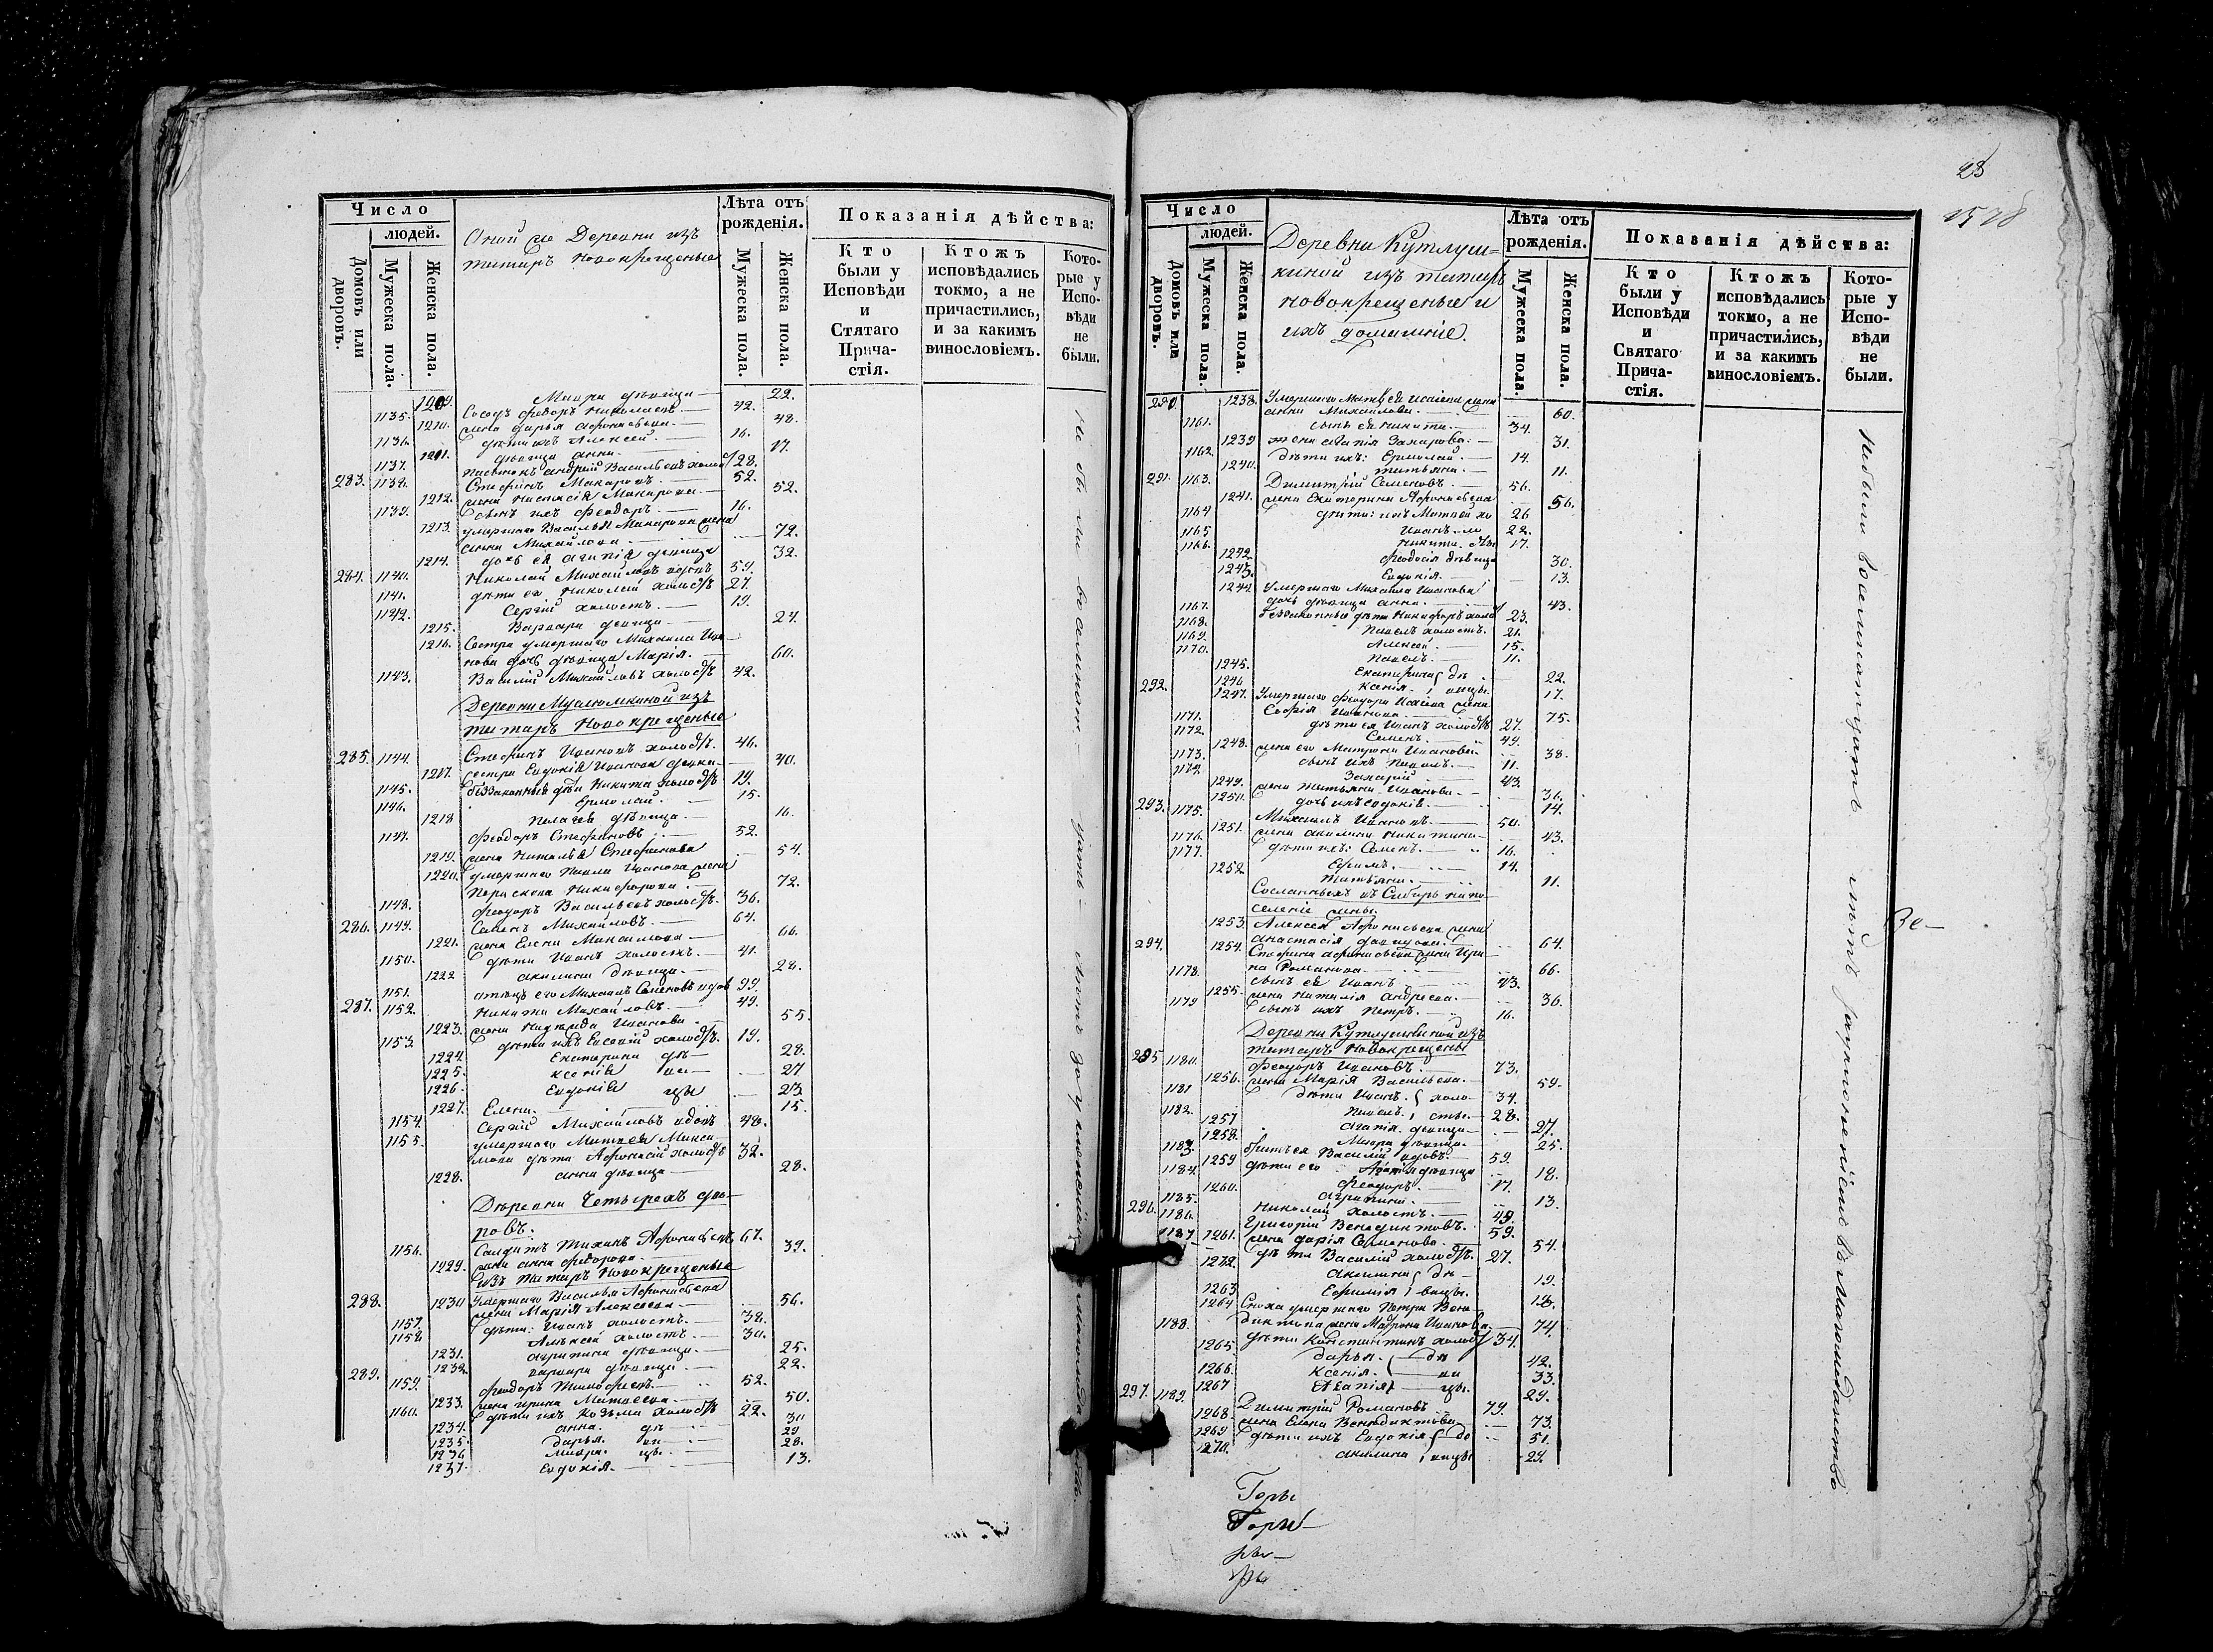 Число
людей.
Домовъ или дворовъ.
Мужеска пола.
Женска пола.
Оной же Деревни изъ
татаръ новокрещеные
Лѣта отъ рожденія.
Мужеска пола.
Женска пола.
Показанія дѣйства:
Кто были у Исповѣди и Стятаго Прича- стія.
Ктожъ исповѣдались токмо, а не причастились, и за какимъ винословіемъ.
Кото- рые у Испо- вѣди не были.
1209. Мавра дѣвица — 22.
1135. Сосѣдъ Ѳедоръ Николаевъ — 42.
1210. жена Дарья Афонасьева — 48.
1136. дѣти ихъ Алексей — 16.
1211. дѣвица Анна — 17.
1137. пасынокъ Андрей Васильевъ холос 28.
283. 1138. Стефанъ Макаровъ — 52.
1212. жена Настасія Макарова — 52.
1139. сынъ ихъ Феодоръ — 16.
1213. умершаго Василья Макарова жена
Анна Михайлова — 72.
1214. дочь ея Агапія дѣвица 32.
284. 1140. Николай Михайловъ вдовъ 59.
1141. дѣти его Николай холостъ 27.
1142. Сергій холостъ — 19.
1215. Варвара дѣвица — 24.
1216. Сестра умершаго Михаила Ива-
нова дочь дѣвица Марія — 60.
1143. Василій Михайловъ холостъ 42.
Деревни Муслюмкиной изъ
татаръ Новокрещеные
285. 1144. Стефанъ Ивановъ холостъ. 46.
1217. сестра Евдокія Иванова дѣвка — 40.
1145. беззаконные дѣти Никита холостъ 19.
1146. Ермолай — 15.
1218 Пелагея дѣвица — 16.
1147. Феодоръ Стефановъ — 52.
1219. жена Наталья Стефанова 54.
1220. умершаго Павла Иванова жена
Параскева Никифорова — 72.
1148. Феодоръ Васильевъ холостъ. 36.
286. 1149. Семенъ Михайловъ — 64.
1221. жена Елена Максимова — 66.
1150. дѣти Иванъ холостъ — 41.
1222 Акилина дѣвица — 28.
1151. отецъ его Михаилъ Семеновъ вдов 99.
287. 1152. Никита Михайловъ — 49.
1223. жена Надежда Иванова — 55.
1153. дѣти ихъ Евсевій холостъ. 19.
1224 Екатерина дѣ — 28.
1225. Ксенія ви — 27
1226. Евдокія цы 23
1227. Елена — 15.
1154. Сергій Михайловъ вдовъ 48.
1155. умершаго Матвея Макси-
мова дѣти Афонасій холостъ 32.
1228. Анна дѣвица — 28.
Деревни Четырехъ дво-
ровъ.
1156. Солдатъ Тихонъ Афонасьевъ 67.
1229. жена Анна Федорова — 39.
изъ татаръ Новокрещеные
288. 1230 Умершаго Василья Афонасьева
жена Марія Алексеева — 56.
1157. дѣти: Иванъ холостъ — 38.
1158 Алексей холостъ — 30.
1231. Агрипина дѣвица — 25.
1232. Варвара дѣвица — 22.
289. 1159. Феодоръ Тимофеевъ — 52.
1233. жена Ирина Матвеева — 50.
1160. дѣти ихъ Козьма холостъ 22.
1234. Анна. дѣ — 30
1235. Дарья ви — 29
1236 Мавра. цы — 28.
1237. Евдокія — 13.
23
1578
Число
людей.
Домовъ или дворовъ.
Мужеска пола.
Женска пола.
Деревни Кутлуш=
киной изъ татаръ
новокрещеные и
ихъ домашніе.
Лѣта отъ рожденія.
Мужеска пола
Женска пола.
Показанія дѣйства:
Кто были у Исповѣди и Святаго Прича- стія.
Ктожъ исповѣдались токмо, а не причастились, и за какимъ винословіемъ.
Кото- рые у Испо- вѣди не были.
290. 1238. Умершаго Матвея Исаева жена
Анна Михайлова — 60.
1161. сынъ ея Никита — 34.
1239 жена Агапія Захарова — 31.
1162 дѣти ихъ: Ермолай — 14.
1240. Татьяна — 11.
291. 1163. Димитрій Семеновъ — 56.
1241. жена Екатерина Афонасьева 56.
1164 дѣти: ихъ Матвей хо 26
1165 Иванъ ло 22.
1166. Никита 17.
1242 Феодосія дѣвица 30.
1243. Евдокія — 13.
1244 Умершаго Михаила Иванова
дочь дѣвица Анна — 43.
1167. беззаконные дѣти Никифоръ холос 23.
1168. Павелъ холостъ. 21.
1169. Алексей — 15.
1170. Павелъ — 11.
1245. Екатерина дѣ — 22.
1246 Ксенія вицы 17.
292. 1247. Умершаго Феодора Исаева жена
Софія Иванова 75.
1171. дѣти ея Иванъ холостъ 27.
1172. Семенъ — 49.
1248. жена его Матрона Иванова 38.
1173. сынъ ихъ Павелъ — 11.
1174. Захарій — 43.
1249. жена Татьяна Иванова — 36.
1250. дочь ихъ Евдокія — 14.
293. 1175. Михаилъ Ивановъ — 50.
1251. жена Акилина Никитина — 43.
1176. дѣти ихъ: Семенъ — 16.
1177. Ефимъ — 14.
1252. Татьяна — 11.
Сосланныхъ въ Сибирь на по-
селеніе жены
1253. Алексея Афонасьева жена
Анастасія Давидова — 64.
294. 1254. Стефана Афонасьева жена Ири-
на Романова — 66.
1178. сынъ ея Иванъ — 43.
1255. жена Наталія Андреева — 36.
1179 сынъ ихъ Петръ — 16.
Деревни Кутлушкиной изъ
татаръ Новокрещены
295 1180. Феодоръ Ивановъ — 73.
1256. жена Марія Васильева — 59.
1181 дѣти Иванъ холо- 34.
1182. Павелъ сты — 28.
1257 Агапія дѣвица — 27.
1258. Мавра дѣвица — 25.
1183. братъ ея Василій вдовъ — 59.
1259 дѣти его Агапія дѣвица 18.
1184. Феодоръ — 17.
1260. Агрипина — 13.
1185. Николай холостъ — 49.
296. 1186. Григорій Венедиктовъ. 59.
1187 1261. жена Дарія Семенова — 54.
дѣти Василій холостъ. 27.
1262. Акилина дѣ — 19.
1263 Евфимія вицы. 18.
1264 Сноха умершаго Петра Вене-
диктова жена Матрона Иванова 74.
1188. дѣти Константинъ холос 34.
1265 Дарья — дѣ 42.
1266. Ксенія — ви 33.
1267 Агапія — цы. 29.
297. 1189. Димитрій Романовъ — 79.
1268. жена Елена Венедиктова — 73.
1269 дѣти ихъ Евдокія дѣ 51.
1270. Акилина вицы 29.
Небыли восмисотцатъ
за уклоненіемъ въ Магометанство
Зе-
Горы
Горы—
ры—
ры